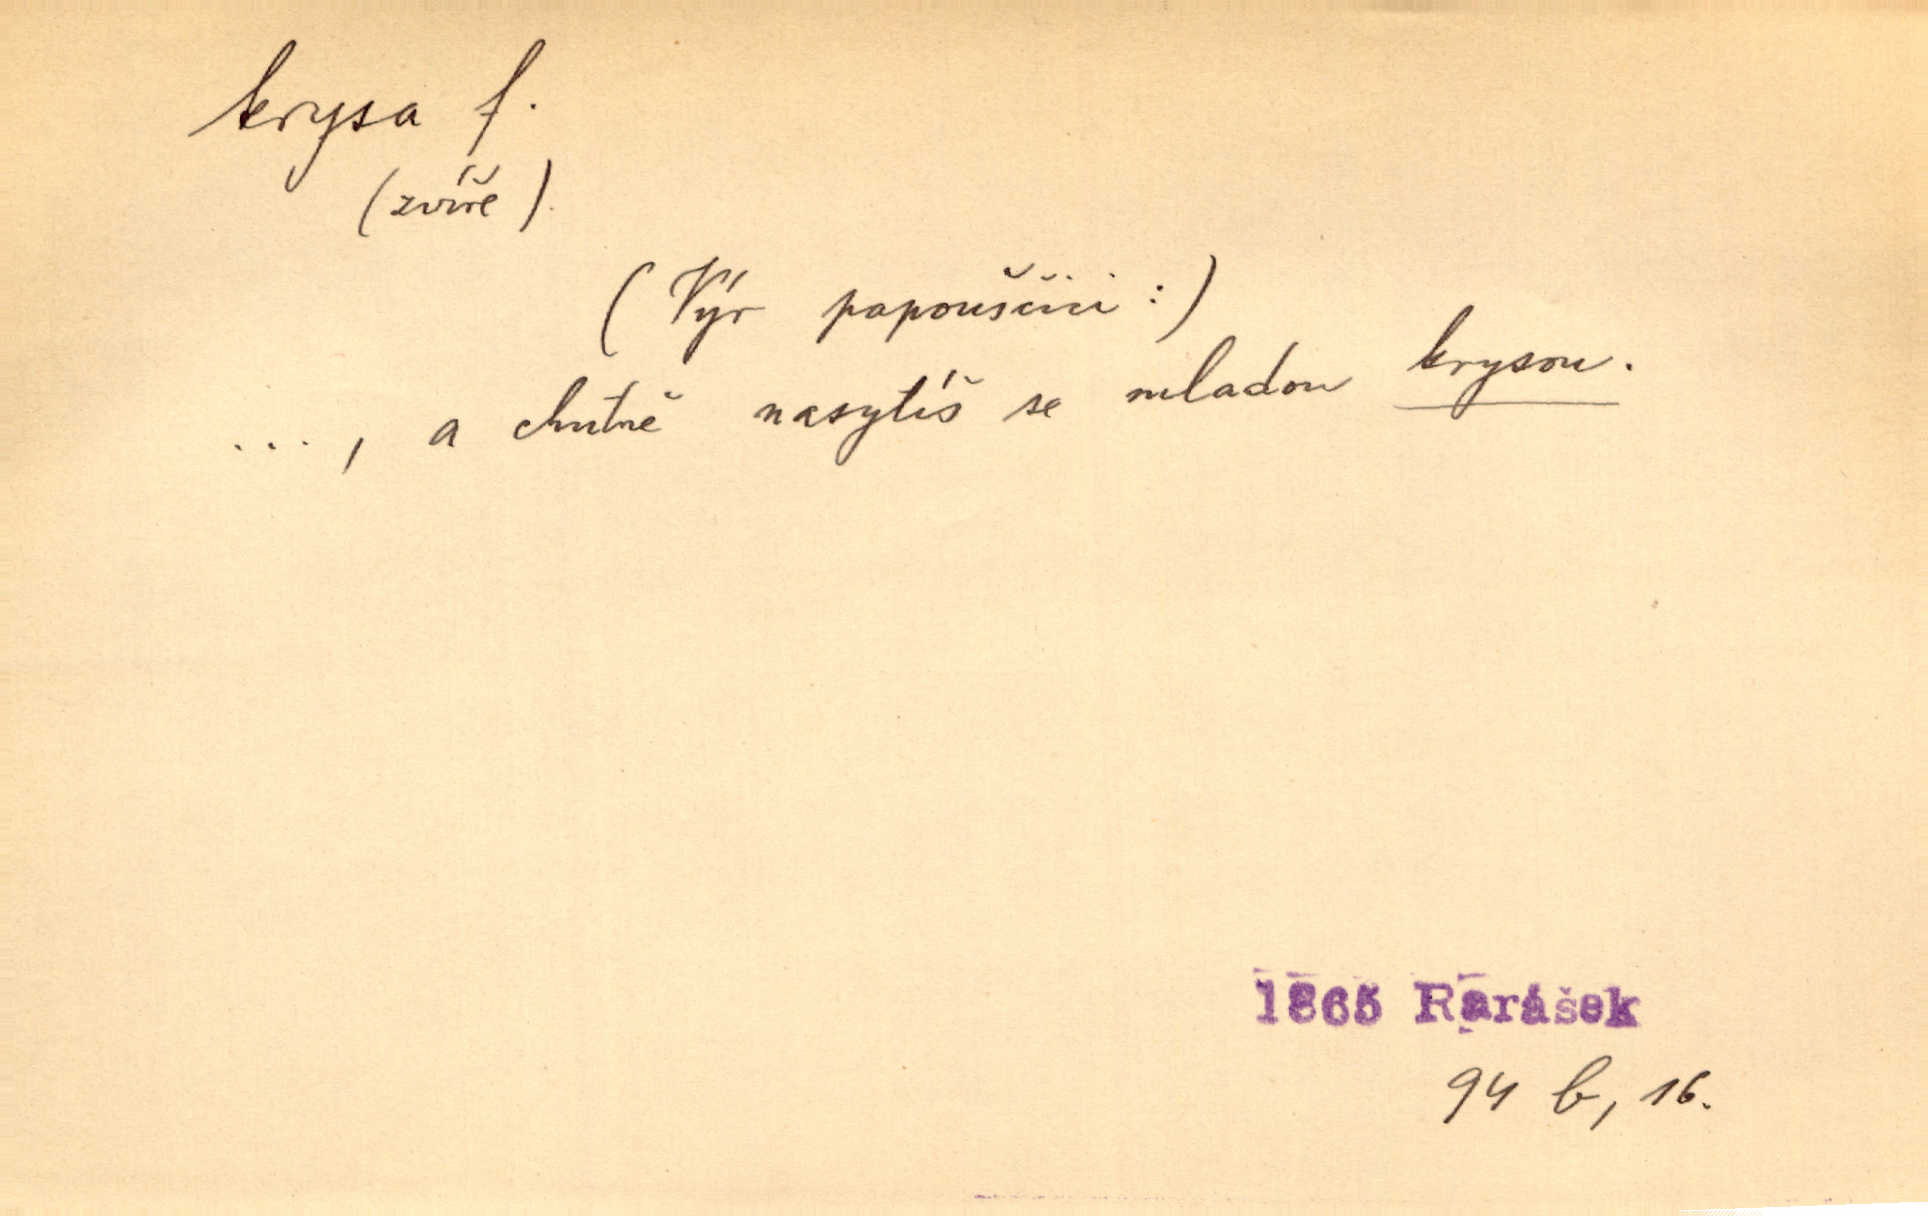 krysa f.
(zvíře).
(Výr papouščici:)
..., a chutně nasytíš se mladou krysou.
1865 Rarášek
94 b, 16.